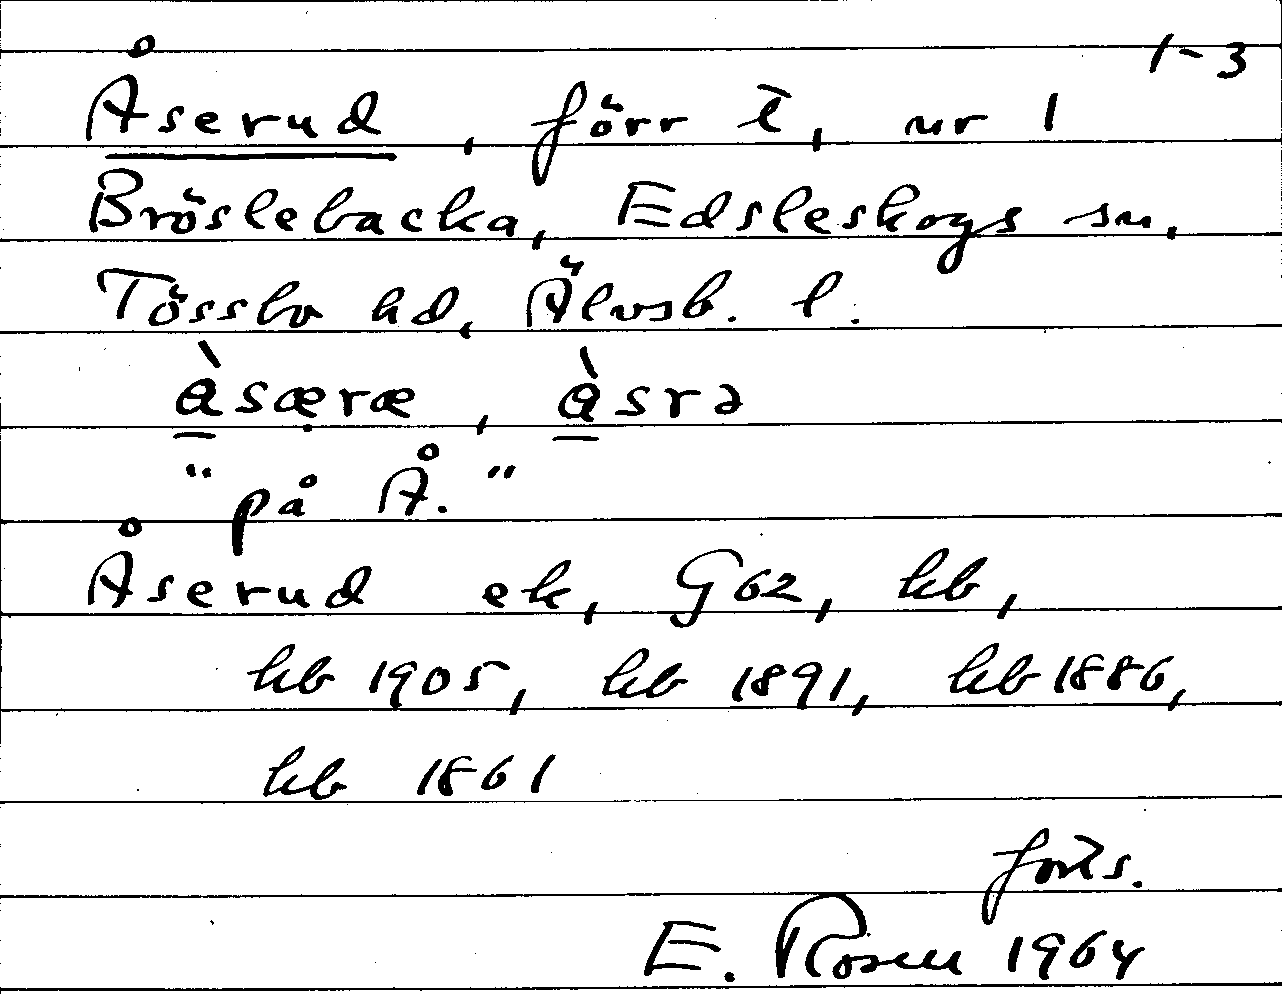 1-3
Åserud, förr t, ur 1
Bröslebacka, Edsleskogs sn,
Tössbo hd, Älvsb. l.
àsæræ, àsrə
"på Å."
Åserud ek, G62, kb,
kb 1905, kb 1891, kb 1886,
kb 1861
forts.
E. Rosen 1964